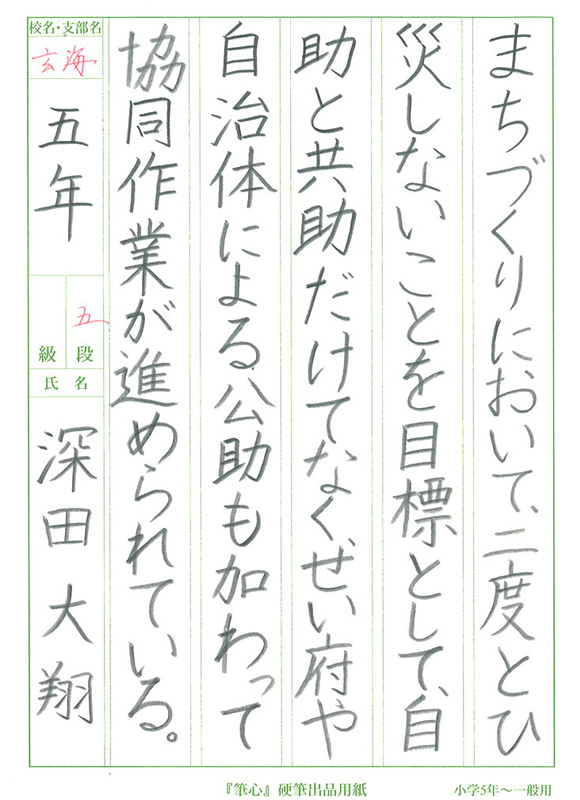 まちづくりにおいて、二度とひ
災しないことを目標として、自
助と共助だけてなく、せい府や
自治体による公助も加わって
協同作業が進められている。
校名・支部名
玄海
五年
五
級 段
氏 名
深田 大翔
『筆心』硬筆出品用紙
小学5年〜一般用